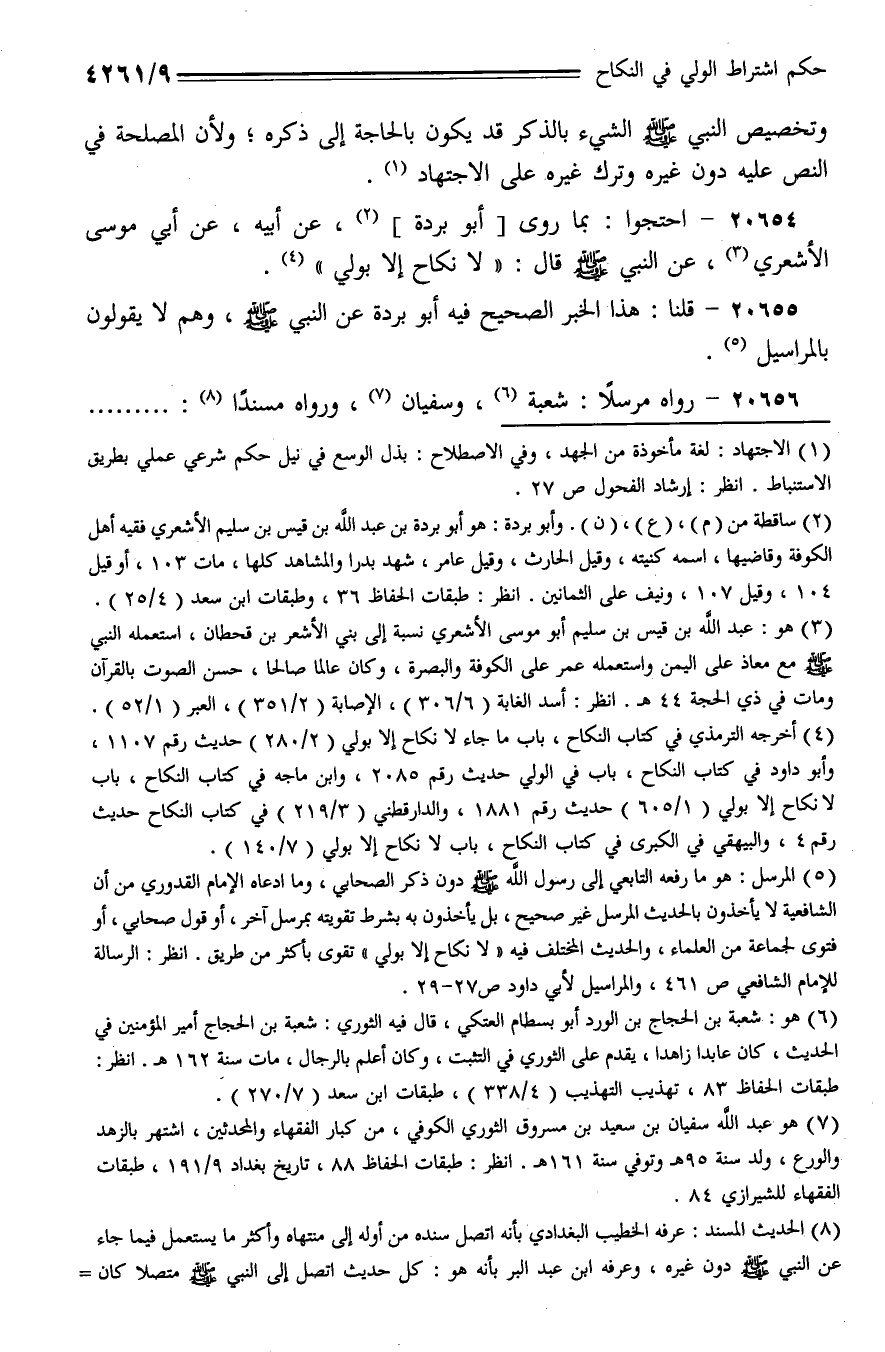 حكم اشتراط الولي في النكاح ٤٢٦١/٩
وتخصيص النبي ﷺ الشيء بالذكر قد يكون بالحاجة إلى ذكره ؛ ولأن المصلحة في
النص عليه دون غيره وترك غيره على الاجتهاد (١) .
٢٠٦٥٤ - احتجوا : بما روى [ أبو بردة ] (٢) ، عن أبيه ، عن أبي موسى
الأشعري (٣) ، عن النبي ﷺ قال : « لا نكاح إلا بولي » (٤) .
٢٠٦٥٥ - قلنا : هذا الخبر الصحيح فيه أبو بردة عن النبي ﷺ ، وهم لا يقولون
بالمراسيل (٥) .
٢٠٦٥٦ - رواه مرسلًا : شعبة (٦) ، وسفيان (٧) ، ورواه مسندًا (٨) : .........
(١) الاجتهاد : لغة مأخوذة من الجهد ، وفي الاصطلاح : بذل الوسع في نيل حكم شرعي عملي بطريق
الاستنباط . انظر : إرشاد الفحول ص ٢٧ .
(٢) ساقطة من (م) ، (ع) ، (ن) . وأبو بردة : هو أبو بردة بن عبد الله بن قيس بن سليم الأشعري فقيه أهل
الكوفة وقاضيها ، اسمه كنيته ، وقيل الحارث ، وقيل عامر ، شهد بدرا والمشاهد كلها ، مات ١٠٣ ، أو قيل
١٠٤ ، وقيل ١٠٧ ، ونيف على الثمانين . انظر : طبقات الحفاظ ٣٦ ، وطبقات ابن سعد ( ٢٥/٤ ) .
(٣) هو : عبد الله بن قيس بن سليم أبو موسى الأشعري نسبة إلى بني الأشعر بن قحطان ، استعمله النبي
ﷺ مع معاذ على اليمن واستعمله عمر على الكوفة والبصرة ، وكان عالما صالحا ، حسن الصوت بالقرآن
ومات في ذي الحجة ٤٤ هـ . انظر : أسد الغابة ( ٣٠٦/٦ ) ، الإصابة ( ٣٥١/٢ ) ، العبر ( ٥٢/١ ) .
(٤) أخرجه الترمذي في كتاب النكاح ، باب ما جاء لا نكاح إلا بولي ( ٢٨٠/٢ ) حديث رقم ١١٠٧ ،
وأبو داود في كتاب النكاح ، باب في الولي حديث رقم ٢٠٨٥ ، وابن ماجه في كتاب النكاح ، باب
لا نكاح إلا بولي ( ٦٠٥/١ ) حديث رقم ١٨٨١ ، والدارقطني ( ٢١٩/٣ ) في كتاب النكاح حديث
رقم ٤ ، والبيهقي في الكبرى في كتاب النكاح ، باب لا نكاح إلا بولي ( ١٤٠/٧ ) .
(٥) المرسل : هو ما رفعه التابعي إلى رسول الله ﷺ دون ذكر الصحابي ، وما ادعاه الإمام القدوري من أن
الشافعية لا يأخذون بالحديث المرسل غير صحيح ، بل يأخذون به بشرط تقويته بمرسل آخر ، أو قول صحابي ، أو
فتوى لجماعة من العلماء ، والحديث المختلف فيه « لا نكاح إلا بولي » تقوى بأكثر من طريق . انظر : الرسالة
للإمام الشافعي ص ٤٦١ ، والمراسيل لأبي داود ص٢٧-٢٩ .
(٦) هو : شعبة بن الحجاج بن الورد أبو بسطام العتكي ، قال فيه الثوري : شعبة بن الحجاج أمير المؤمنين في
الحديث ، كان عابدا زاهدا ، يقدم على الثوري في التثبت ، وكان أعلم بالرجال ، مات سنة ١٦٢ هـ . انظر :
طبقات الحفاظ ٨٣ ، تهذيب التهذيب ( ٣٣٨/٤ ) ، طبقات ابن سعد ( ٢٧٠/٧ ) .
(٧) هو عبد الله سفيان بن سعيد بن مسروق الثوري الكوفي ، من كبار الفقهاء والمحدثين ، اشتهر بالزهد
والورع ، ولد سنة ٩٥هـ وتوفي سنة ١٦١هـ . انظر : طبقات الحفاظ ٨٨ ، تاريخ بغداد ١٩١/٩ ، طبقات
الفقهاء للشيرازي ٨٤ .
(٨) الحديث المسند : عرفه الخطيب البغدادي بأنه اتصل سنده من أوله إلى منتهاه وأكثر ما يستعمل فيما جاء
عن النبي ﷺ دون غيره ، وعرفه ابن عبد البر بأنه هو : كل حديث اتصل إلى النبي ﷺ متصلا كان =